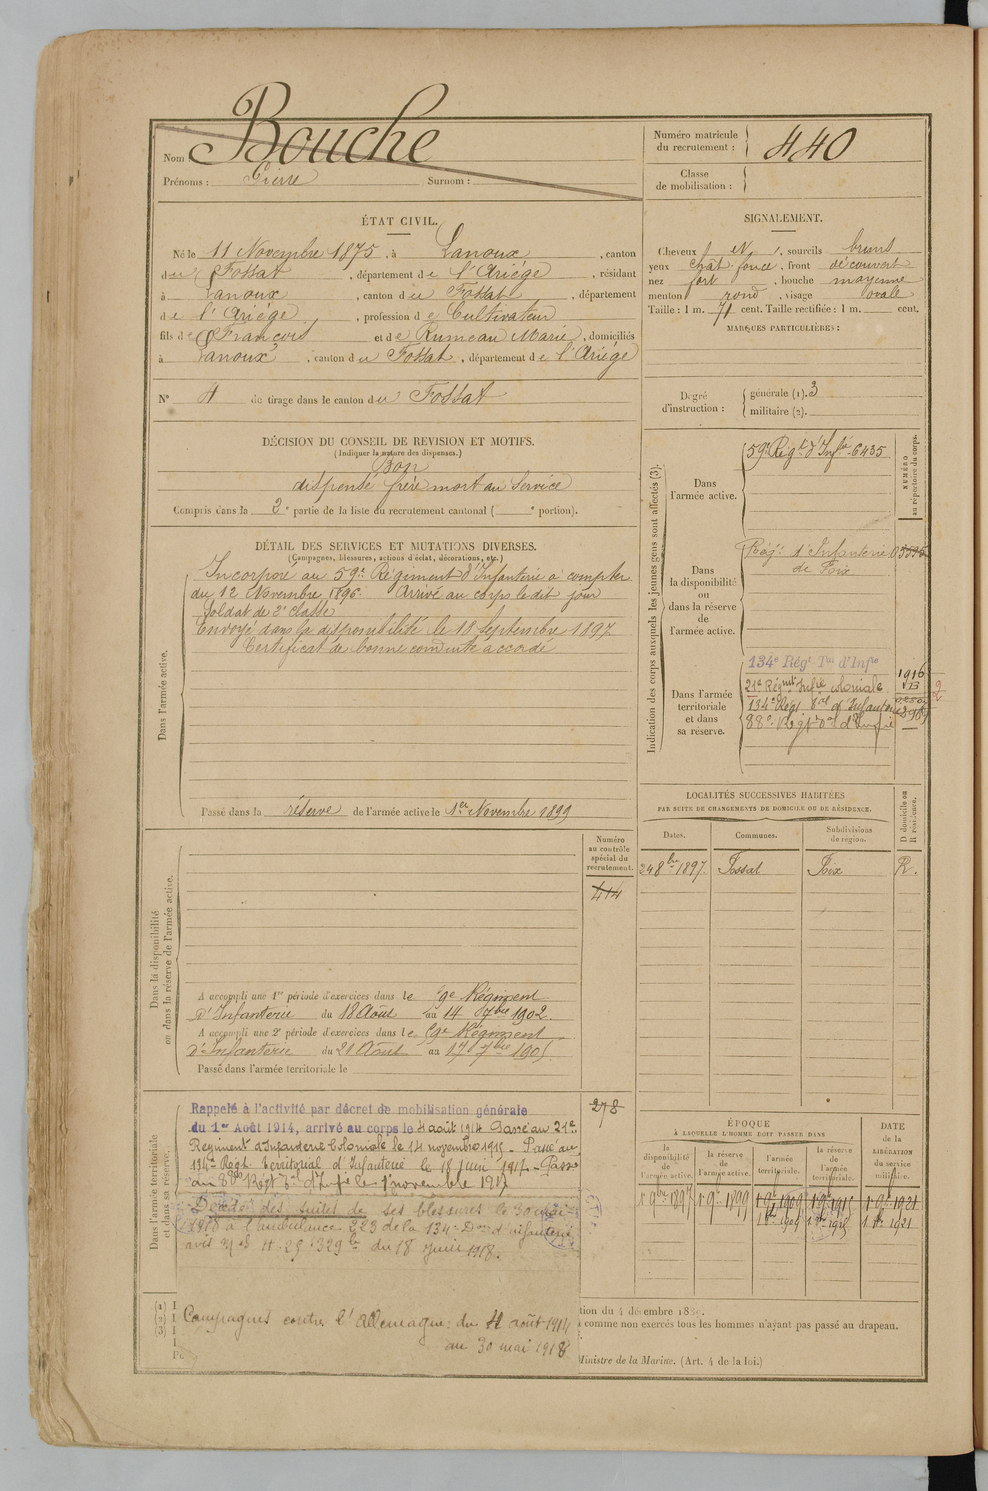 Nom Bouche
Prénoms : Pierre Surnom :
Numéro matricule du recrutement : 440
Classe de mobilisation :
ÉTAT CIVIL.
Né le 11 Novembre 1875, à Lanoux, canton
du Fossat, département de l'Ariége, résidant
à Lanoux, canton du Fossat, département
de l'Ariége, profession de Cultivateur
fils de François et de Rumeau Marie, domiciliés
à Lanoux, canton du Fossat, département de l'Ariége
N° 4 de tirage dans le canton du Fossat
DÉCISION DU CONSEIL DE REVISION ET MOTIFS.
(Indiquer la nature des dispenses.)
Bon
dispensé frère mort au service
Compris dans la 2e partie de la liste du recrutement cantonal ( e portion).
DÉTAIL DES SERVICES ET MUTATIONS DIVERSES.
(Campagnes, blessures, actions d'éclat, décorations, etc.)
Dans l'armée active.
Incorporé au 59e Régiment d'Infanterie à compter
du 12 Novembre 1896. Arrivé au corps le dit jour
Soldat de 2e classe
Envoyé dans la disponibilité le 18 Septembre 1897
Certificat de bonne conduite accordé
Passé dans la réserve de l'armée active le 1er Novembre 1899
Dans la disponibilité ou dans la réserve de l'armée active.
Numéro au contrôle spécial du recrutement.
414
A accompli une 1re période d'exercices dans le 59e Régiment
d'Infanterie du 18 Août au 14 7bre 1902.
A accompli une 2e période d'exercices dans le 59e Régiment
d'Infanterie du 21 Août au 17 7bre 1905
Passé dans l'armée territoriale le
Dans l'armée territoriale et dans sa réserve.
278
Rappelé à l'activité par décret de mobilisation générale
du 1er Août 1914, arrivé au corps le 4 août 1914 Passé au 21e
Régiment d'Infanterie Coloniale le 14 novembre 1915 - Passé au
134e Régt Territorial d'Infanterie le 18 Juin 1917 - Passé
au 88e Régt Tal d'Infie le 1 novembre 1917
Décédé des suites de ses blessures le 30 mai
1918 à l'ambulance 223 de la 134e Don d'infanterie
avis du 18 juin 1918.
Campagnes contre l'Allemagne : du 4 août 1914
au 30 mai 1918
SIGNALEMENT.
Cheveux et, sourcils bruns
yeux chat. foncé, front découvert
nez fort, bouche moyenne
menton rond, visage ovale
Taille : 1 m. 71 cent. Taille rectifiée : 1 m. cent.
MARQUES PARTICULIÈRES :
Degré d'instruction : générale (1). 3
militaire (2).
Indication des corps auxquels les jeunes gens sont affectés (3).
NUMÉRO au répertoire du corps.
Dans l'armée active.
59e Régt d'Infie 6435
Dans la disponibilité ou dans la réserve de l'armée active.
Régt d'Infanterie
de Foix
Dans l'armée territoriale et dans sa réserve.
134e Régt Tal d'Infie
21e Régmt Infie coloniale
134e Régt Tal d'Infanterie
88e Régt Tal d'Infie
1916
LOCALITÉS SUCCESSIVES HABITÉES
PAR SUITE DE CHANGEMENTS DE DOMICILE OU DE RÉSIDENCE.
D domicile ou R résidence.
Dates. Communes. Subdivisions de région.
24 8bre 1897 Fossat Foix R.
ÉPOQUE
À LAQUELLE L'HOMME DOIT PASSER DANS
DATE de la LIBÉRATION du service militaire.
la disponibilité de l'armée active. la réserve de l'armée active. l'armée territoriale. la réserve de l'armée territoriale.
1 9bre 1897 1 9bre 1899 1 9bre 1909 1 9bre 1915 1 9bre 1921
1 8bre 1909 1 8bre 1915 1 8bre 1921
(1) I
(2) I
(3) I
tion du 4 décembre 188
comme non exercés tous les hommes n'ayant pas passé au drapeau.
Ministre de la Marine. (Art. 4 de la loi.)